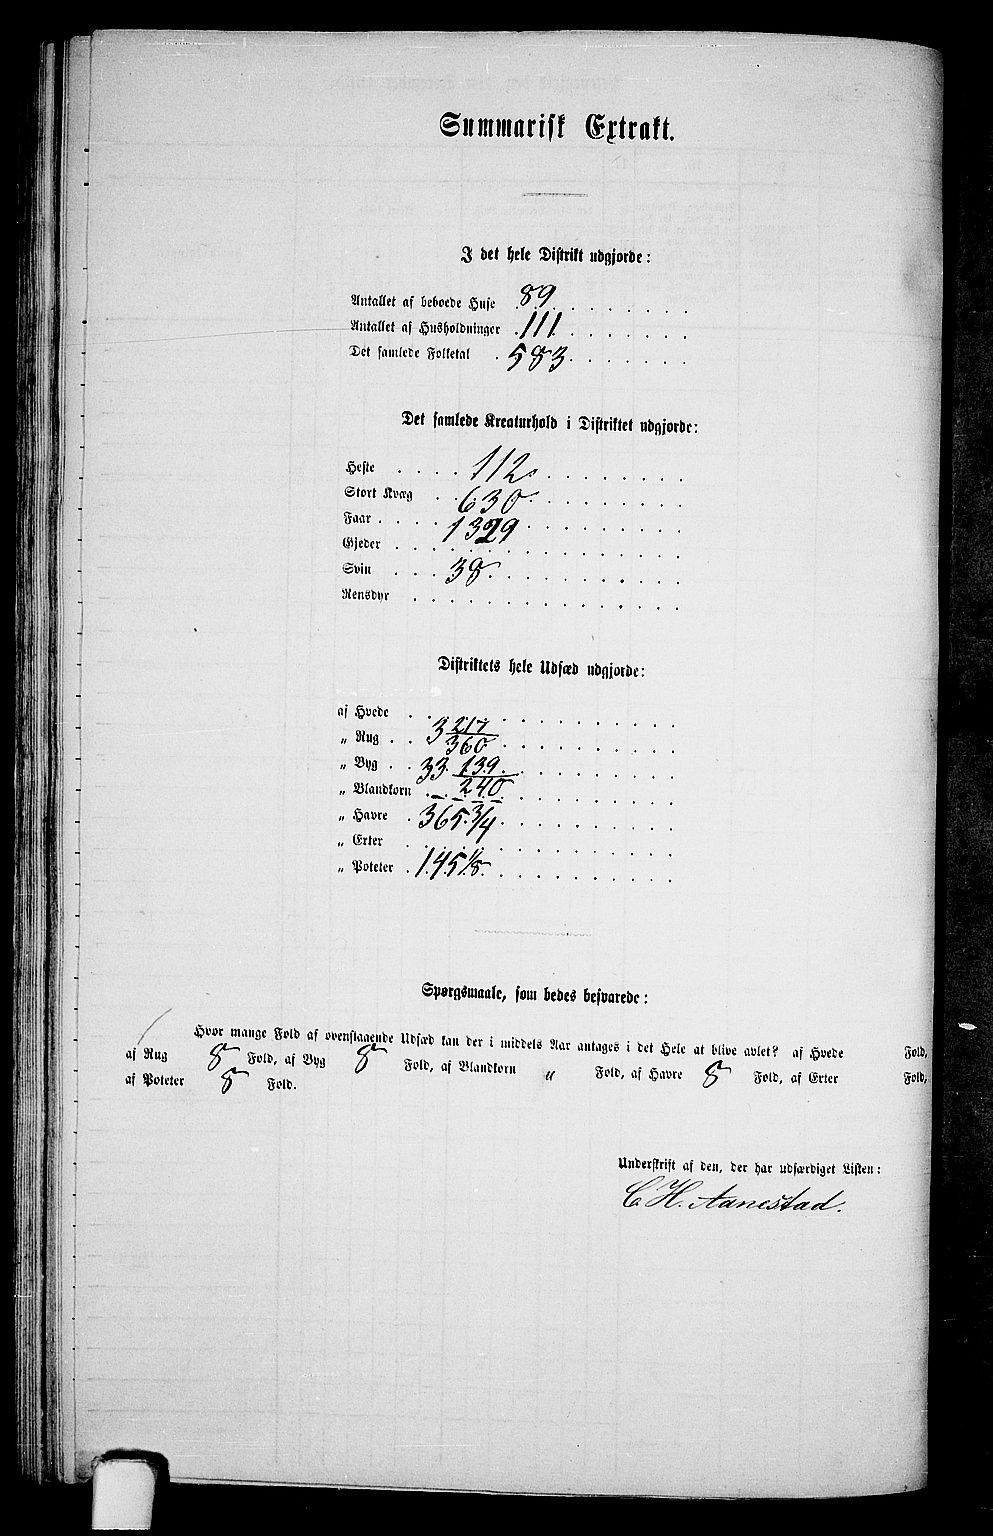 Summarisk Extrakt.
I det hele Distrikt udgjorde:
Antallet af beboede Huse 89
Antallet af Husholdninger 111
Det samlede Folketal 583
Det samlede Kreaturhold i Distriktet udgjorde:
Heste 112
Stort Kvæg 630
Faar 1329
Gjeder
Svin 38
Rensdyr
Distriktets hele Udsæd udgjorde:
af Hvede
„ Rug 3 217/360
„ Byg 33 139/240
„ Blandkorn – – – –
„ Havre 365 3/4
„ Erter
„ Poteter 145 1/8
Spørgsmaale, som bedes besvarede:
Hvor mange Fold af ovenstaaende Udsæd kan der i middels Aar antages i det Hele at blive avlet? af Hvede Fold,
af Rug 8 Fold, af Byg 8 Fold, af Blandkorn „ Fold, af Havre 8 Fold, af Erter Fold,
af Poteter 8 Fold.
Underskrift af den, der har udfærdiget Listen:
C. H. Aanestad.